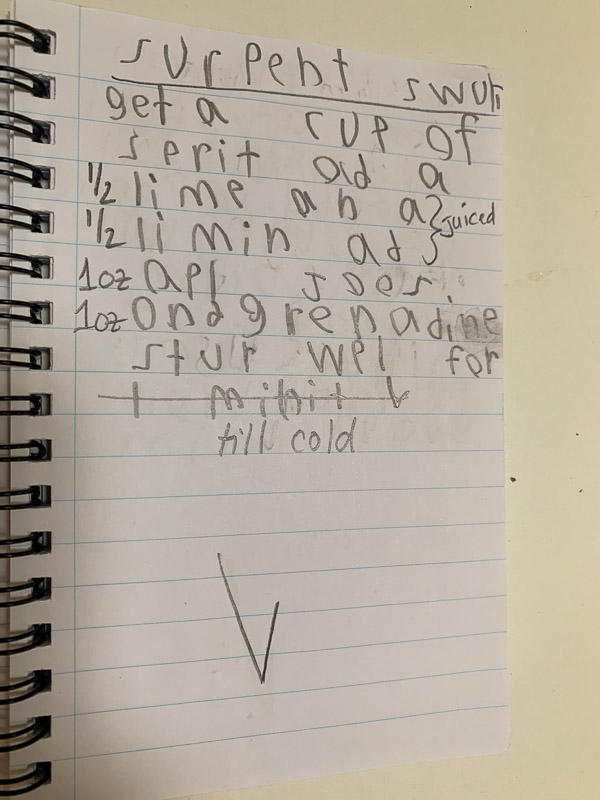 surpent swurl
get a cup of
sprit ad a
1/2 lime an a } juiced
1/2 limin ad
1oz apl joes.
1oz ond grenadine
stur wel for
1 minit
till cold